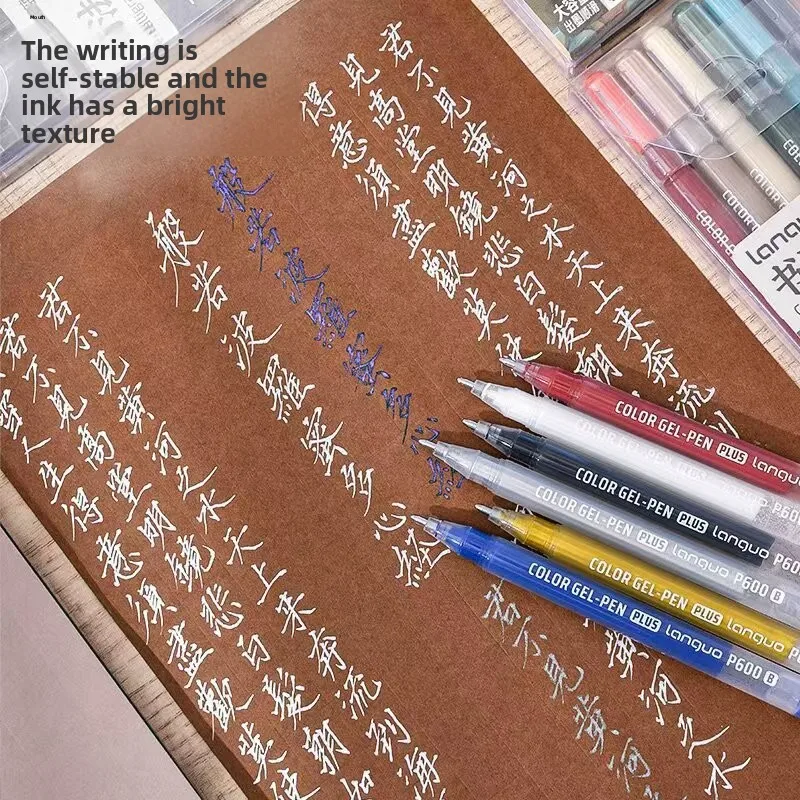 The writing is
self-stable and the
ink has a bright
texture
大容量
出墨顺滑
君不見黄河之水天上来奔流
見高堂明鏡悲白髮朝
得意須盡歡莫使
般若波羅蜜多心經
般若波羅蜜多心經
君不見黄河之水天上来奔流到海
君不見高堂明鏡悲白髮朝如
人生得意須盡歡莫使
君不見黄河
黄河之水
COLOR GEL-PEN PLUS languo P600
COLOR GEL-PEN PLUS languo P600
COLOR GEL-PEN PLUS languo P600 B
COLOR GEL-PEN PLUS languo P60
COLOR GEL-PEN PLUS languo P600 B
COLOR
COLOR
COLOR
COLOR G
languo